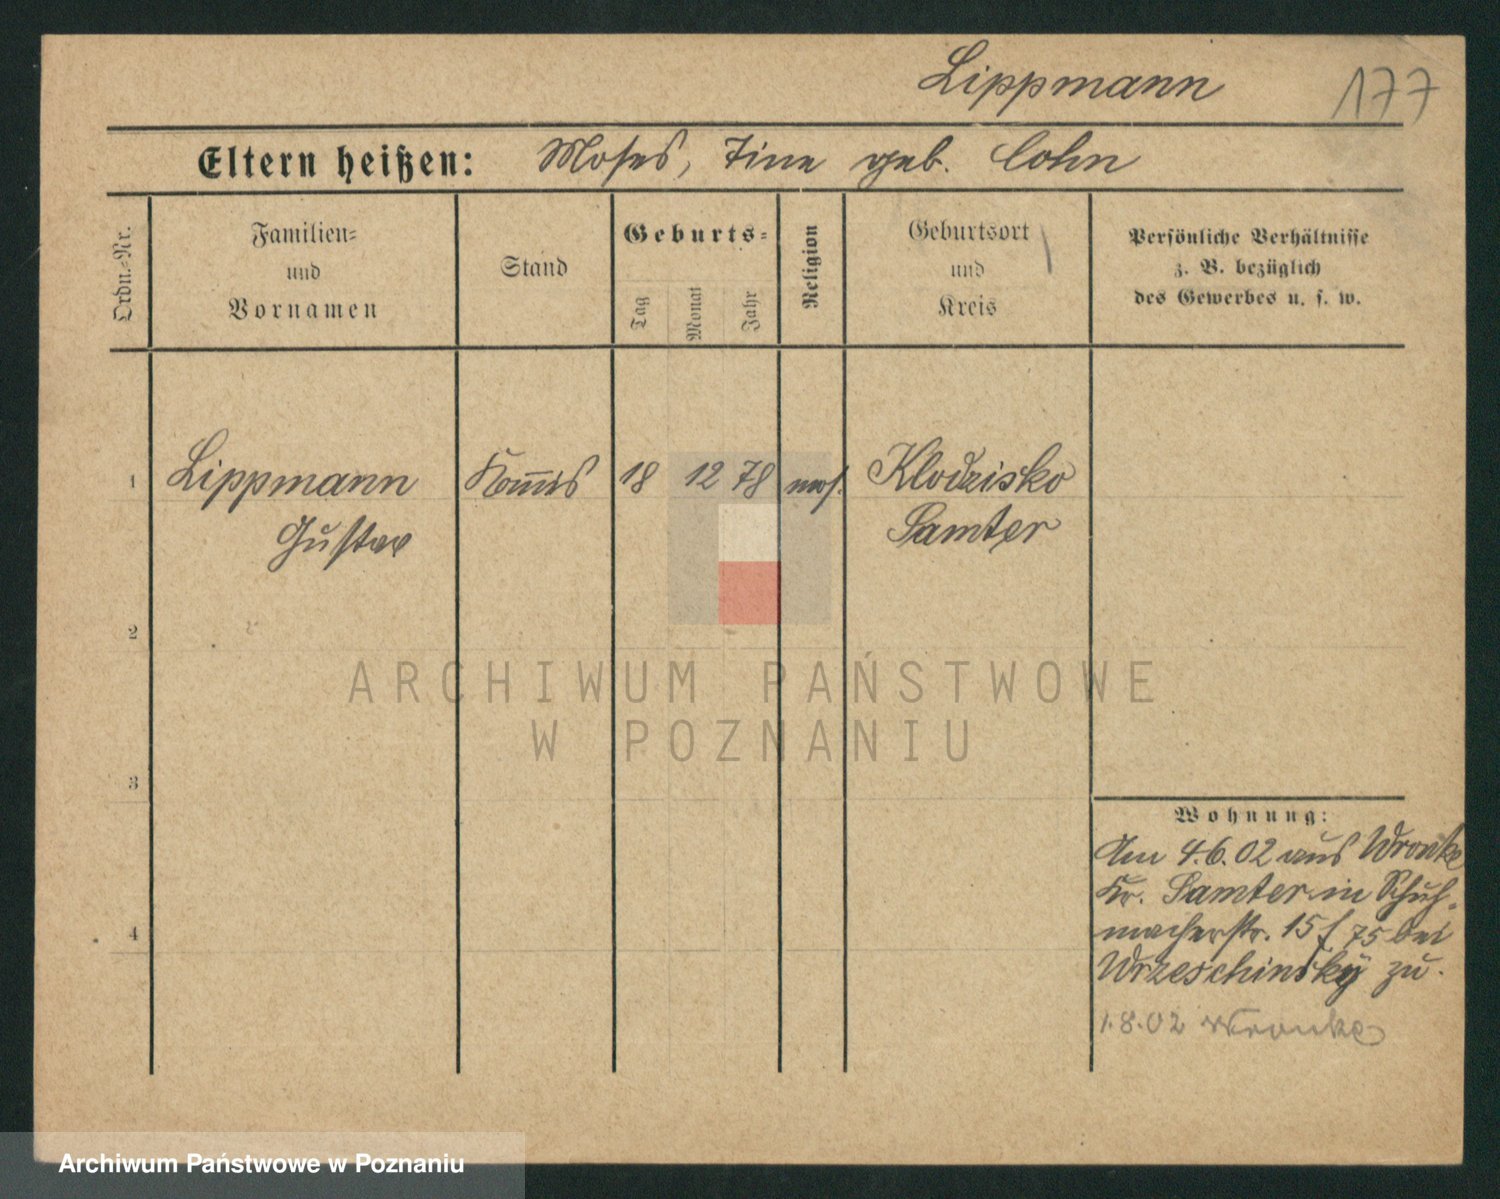 Lippmann
177
Eltern heißen: Moses, Tine geb. Cohn
Ordn.-Nr.
Familien-
und
Vornamen
Stand
Geburts-
Tag
Monat
Jahr
Religion
Geburtsort
und
Kreis
Persönliche Verhältnisse
z. B. bezüglich
des Gewerbes u. s. w.
1
Lippmann
Gustav
Kom̅is
18
12
78
mos.
Klodzisko
Samter
2
3
4
ARCHIWUM PAŃSTWOWE
W POZNANIU
Wohnung:
Am 4.6.02 aus Wronke
Kr. Samter in Schuh-
macherstr. 15 f 75 bei
Wrzeschinsky zu.
1.8.02 Wronke
Archiwum Państwowe w Poznaniu